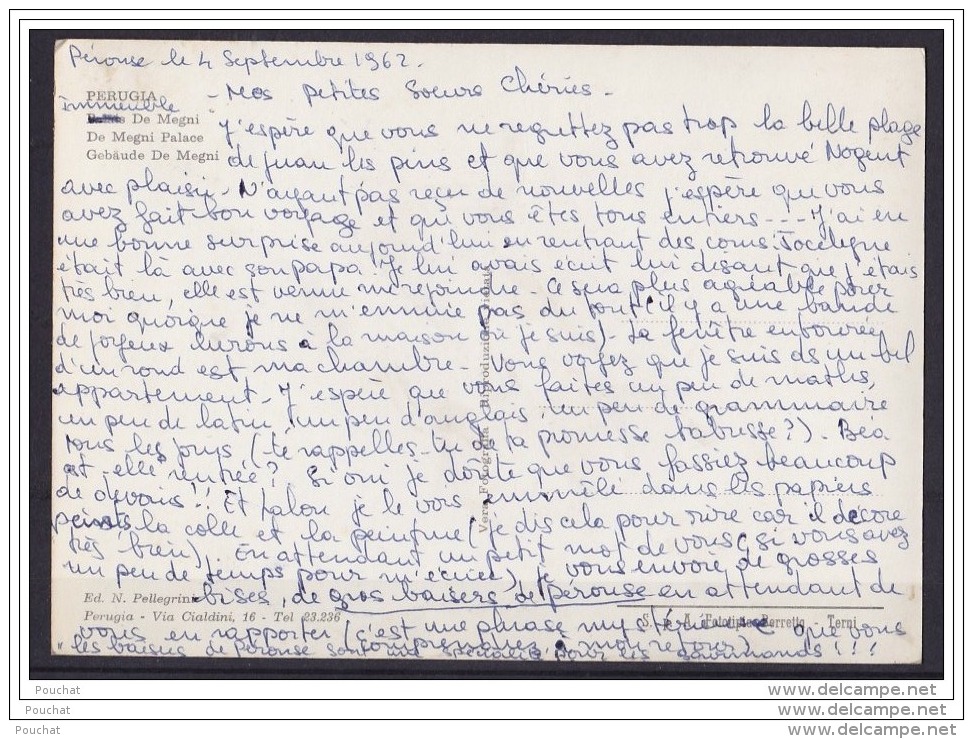 Pérouse le 4 Septembre 1962.
- Mes petites Soeurs Chéries -
PERUGIA
immeuble
De Megni
De Megni Palace
Gebäude De Megni
J'espère que vous ne regrettez pas trop la belle plage
de Juan les pins et que vous avez retrouvé Nogent
avec plaisir. N'ayant pas reçu de nouvelles j'espère que vous
avez fait bon voyage et que vous êtes tous entiers --- J'ai eu
une bonne surprise aujourd'hui en rentrant des cours: Jocelyne
était là avec son papa. Je lui avais écrit lui disant que j'étais
très bien, elle est venue me rejoindre. Ce sera plus agréable pour
moi quoique je ne m'ennuie pas du tout (il y a une bande
de joyeux lurons à la maison où je suis). La fenêtre entourée
d'un rond est ma chambre. Vous voyez que je suis ds un bel
appartement. J'espère que vous faites un peu de maths,
un peu de latin, un peu d'anglais, un peu de grammaire
tous les jours (te rappelles-tu de ta promesse ?). Béa
est-elle rentrée? Si oui je doute que vous fassiez beaucoup
de devoirs!! Et je le vois emmêlé dans les papiers
peints la colle et la peinture (je dis cela pour rire car il décore
très bien). En attendant un petit mot de vous (si vous avez
un peu de temps pour m'écrire), je vous envoie de grosses
bises, de gros baisers de Pérouse en attendant de
vous en rapporter (c'est une phrase mystérieuse que vous
à mon retour)
les baisers de Pérouse sont pour les gourmands!!!
Vera Fotografia - Riproduzione Vietata
Ed. N. Pellegrini
Perugia - Via Cialdini, 16 - Tel 23.236
S. A. Fototipia Berretta - Terni
Pouchat
www.delcampe.net
Pouchat
www.delcampe.net
Pouchat
www.delcampe.net